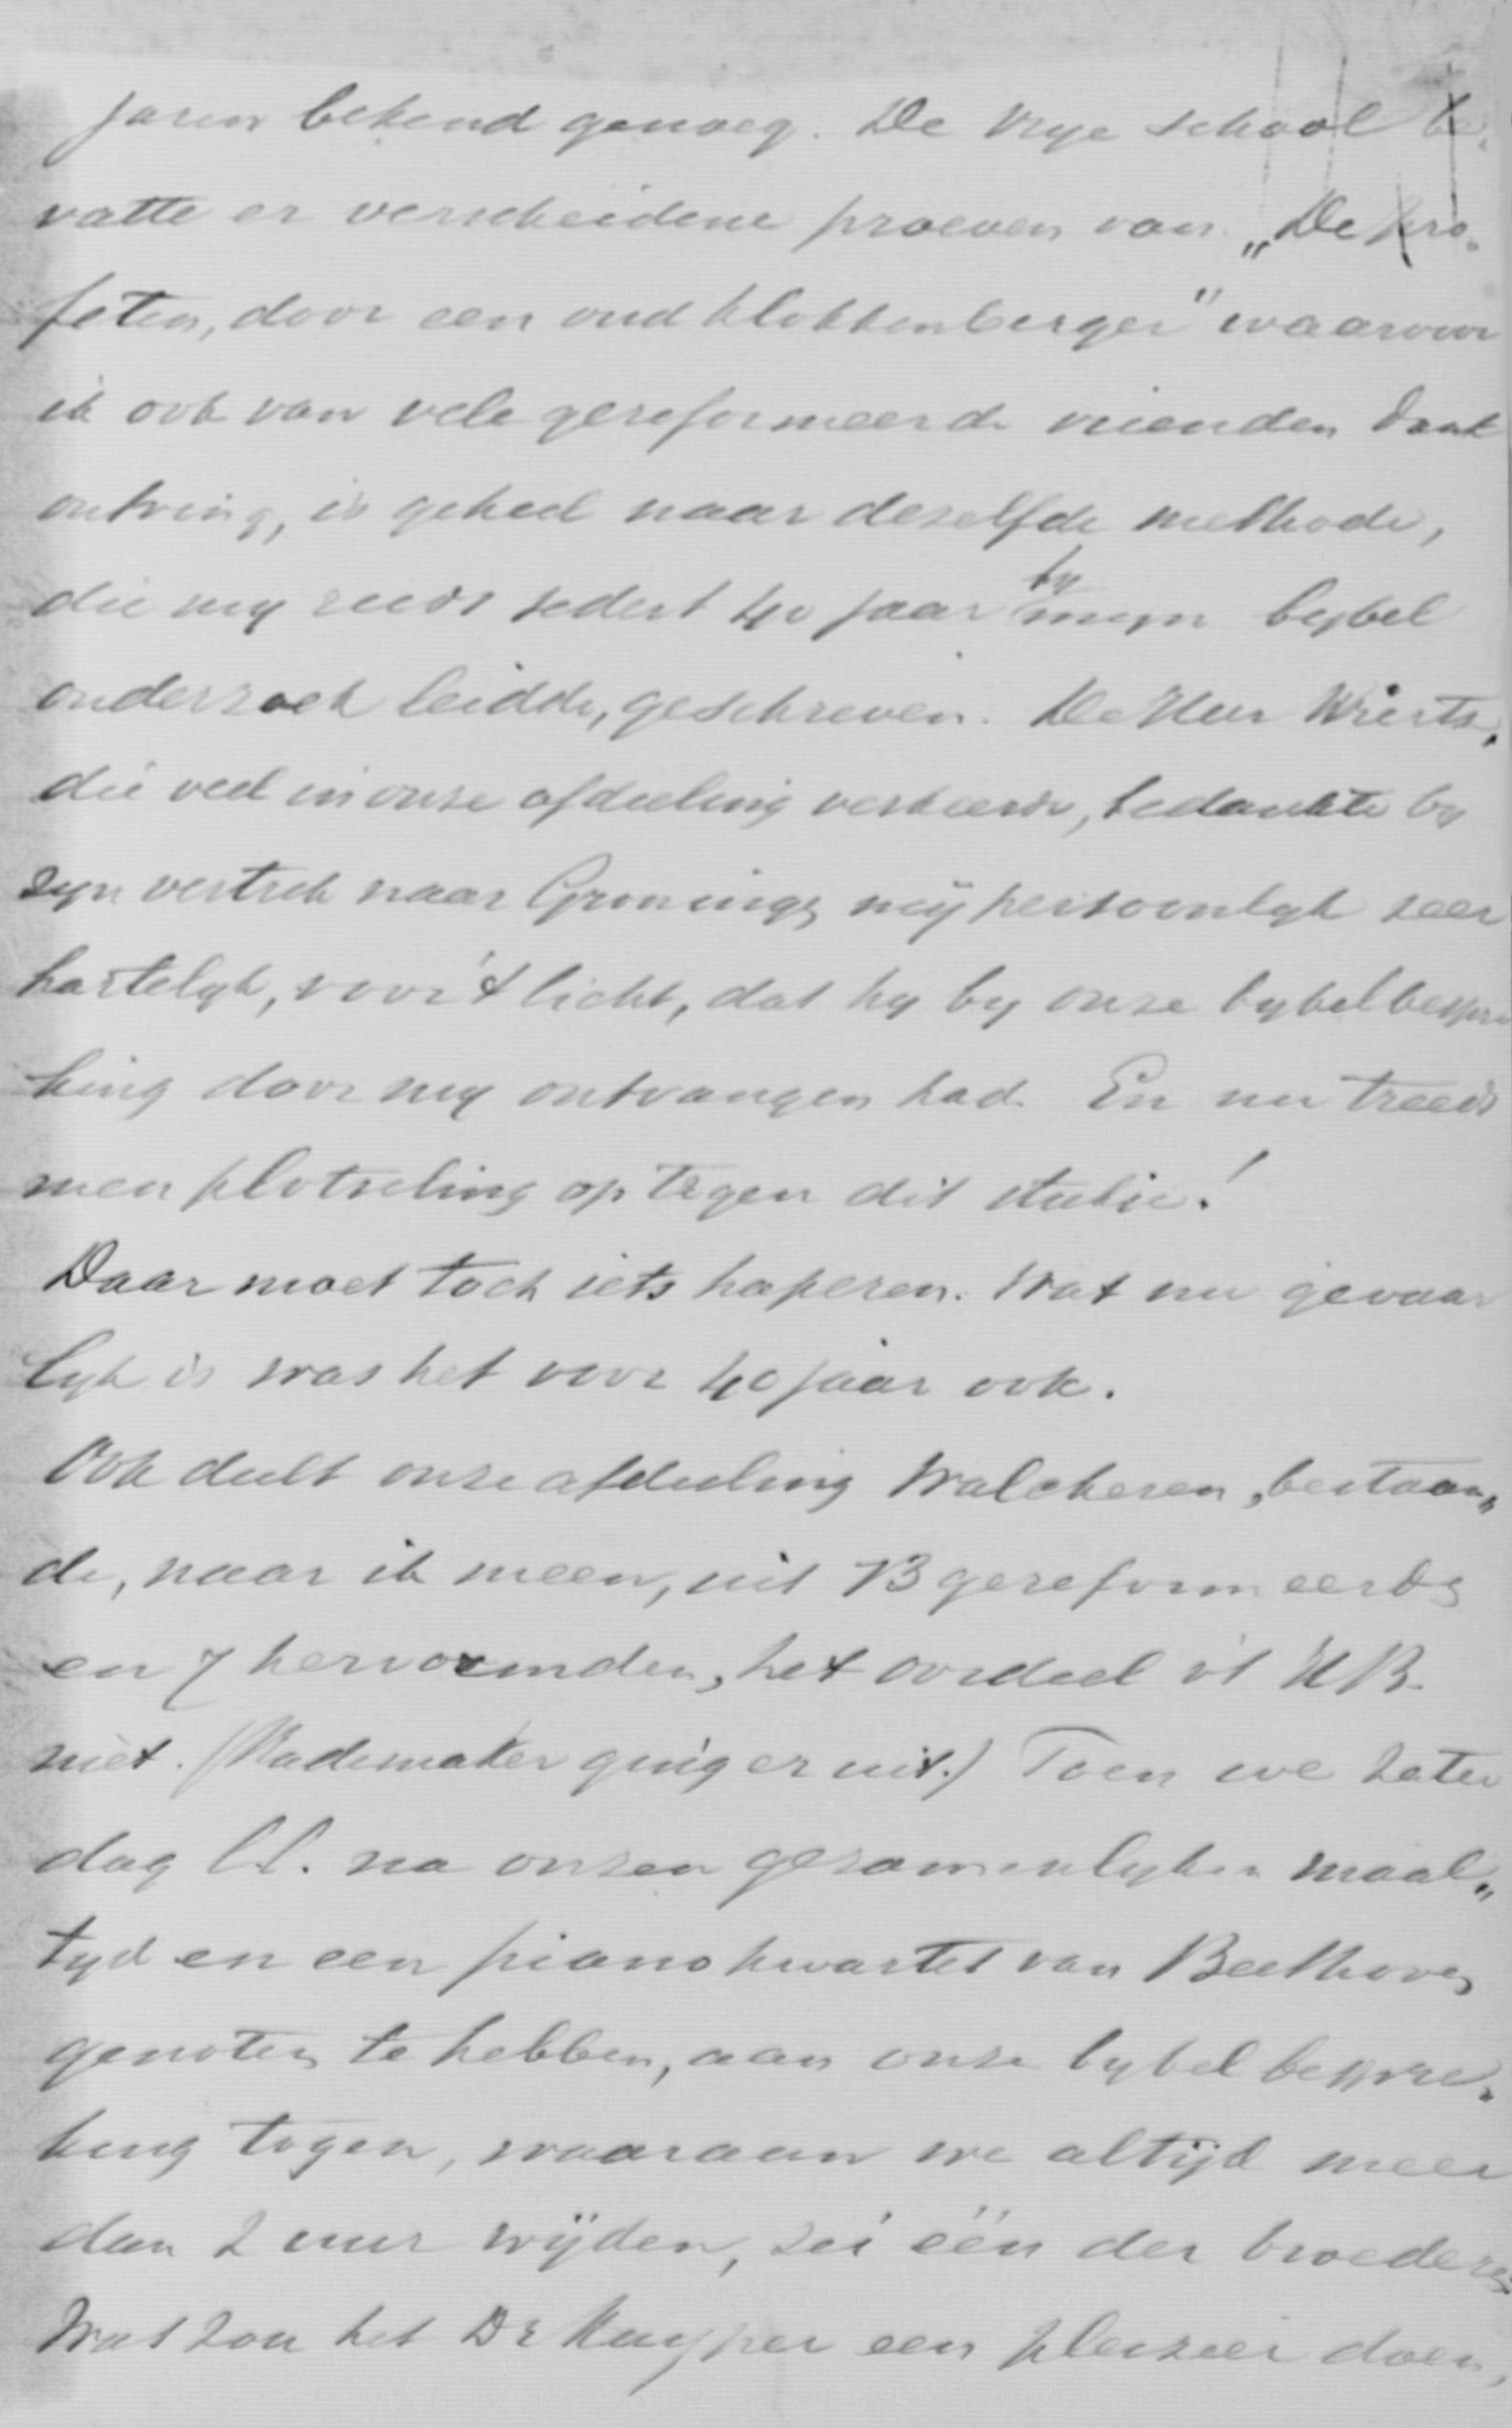 jaren bekend genoeg. De Vrye School be„
vatte er verscheidene proeven van. „De pro„
feten, door een oud Klokkenberger" waarvoor
ik ook van vele gereformeerde vrienden dank
ontving, is geheel naar deselfde methode,
die my reeds sedert 40 jaar by myn bybel
onderzoek leidde, geschreven. De Heer Wierts,
die veel in onze afdeeling verkeerde, bedankte by
zyn vertrek naar Groningen mÿ persoonlyk zeer
hartelyk, voor 't licht, dat hy by onze bybelbespre
king door my ontvangen had. En nu treedt
men plotseling op tegen dit studie!
Daar moet toch iets haperen. Wat nu gevaar
lyk is was het voor 40 jaar ook.
Ook deelt onze afdeeling Walcheren, bestaan„
de, naar ik meen, uit 13 gereformeerden
en 7 hervormden, het oordeel v't H.B.
niet. (Rademaker ging er uit.) Toen we Zater
dag l.l. na onzen gezamenlyken maal„
tyd en een pianokwartet van Beethoven
genoten te hebben, aan onze bybelbespre„
king togen, waaraan we altijd meer
dan 2 uur wÿden, zei één der broeders:
Wat zou het Dr Kuyper een pleizier doen,